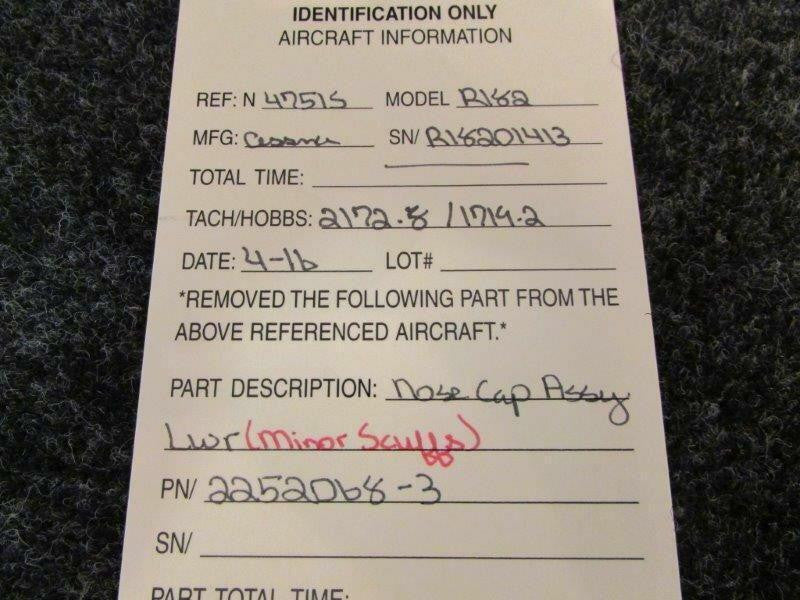 IDENTIFICATION ONLY
AIRCRAFT INFORMATION
REF: N 4751S MODEL R182
MFG: Cessna SN/ R18201413
TOTAL TIME:
TACH/HOBBS: 2172.8 / 1719.2
DATE: 4-16 LOT#
*REMOVED THE FOLLOWING PART FROM THE
ABOVE REFERENCED AIRCRAFT.*
PART DESCRIPTION: Nose Cap Assy
Lwr (Minor Scuffs)
PN/ 2252068-3
SN/
PART TOTAL TIME: